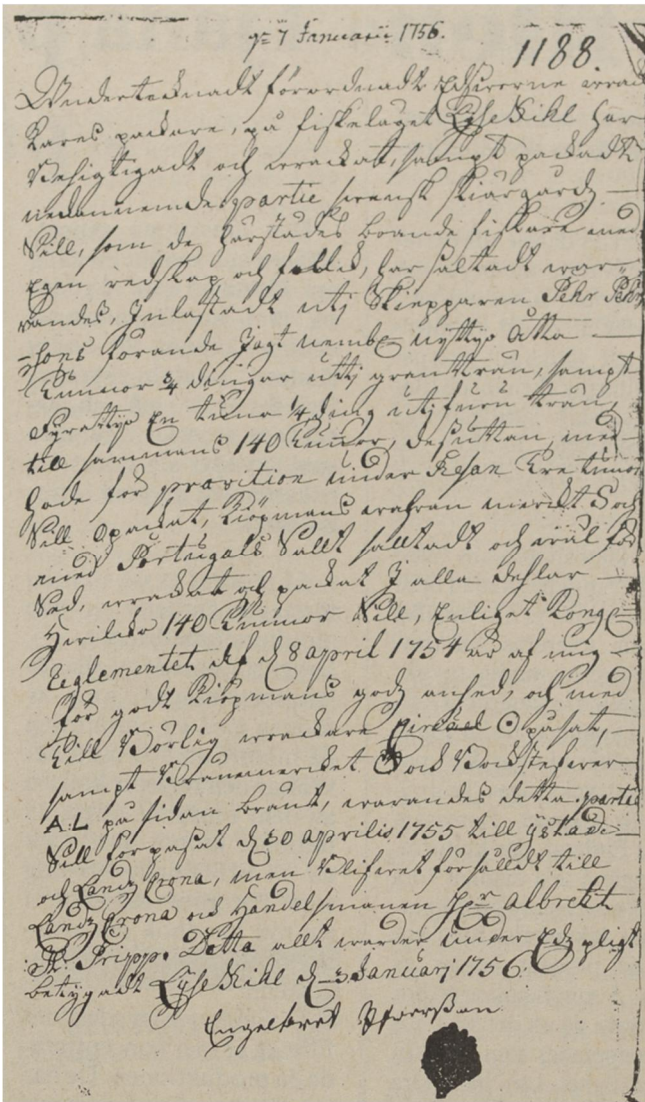 d 7 Januarii 1756.
1188.
Undertecknadt förordnadt Edsvorne
packare, på fiskeläget Lysekihl har
Besigtigadt och wrackat, sampt packadt
nedannemde partie swensk skiärgårdz
Sill, som de härstädes boende fiskare med
Egen redskap och folck, har saltadt
Inlastadt utj Skiepparen Pehr Pehr
-sons förande Jagt nembl nyttyo Åtta
tunnor 3/4 dingar uttj granträn, sampt
Fyrattyo En tuna 1/4 ding utj furu trän,
till sammans 140 tunnor, desuttan med
hade för provition under Resan tre tunor
Sill Opackat, Kiöpmans
med Portugals Sallt salltadt och wäl
wrackat och packat J alla dehlar
Hwilka 140 Tunnor Sill, Enligit Kongl
Reglementet af d 8 april 1754 är af mig
för godt Kiöpmans godz ansed, och med
till Börlig wrackare Circkel O påsat,
sampt Brännemercket och Bockstefwer
A:L på sidan bränt, warandes detta partie
Sill förpasat d 30 aprilis 1755 till ÿstade
och Landz Crona, men Bliferet försålldt till
Landz Crona och Handelsmanen Hr Albrekt
Pripp. Detta allt warder under Edz pligt
betygadt Lysekihl d 3 Januarj 1756.
Engelbret